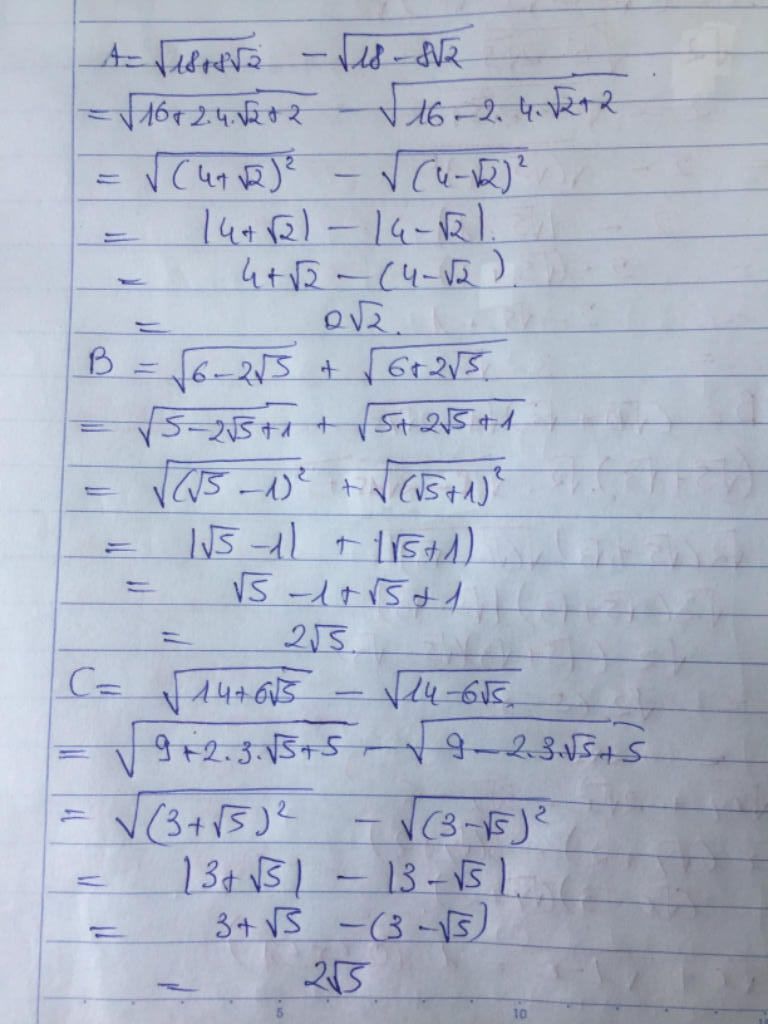 A = √(18+8√2) - √(18-8√2)
= √(16+2.4.√2+2) - √(16-2.4.√2+2)
= √((4+√2)²) - √((4-√2)²)
= |4+√2| - |4-√2|.
= 4+√2 - (4-√2).
= 2√2.
B = √(6-2√5) + √(6+2√5).
= √(5-2√5+1) + √(5+2√5+1)
= √((√5-1)²) + √((√5+1)²)
= |√5-1| + |√5+1|
= √5-1+√5+1
= 2√5.
C = √(14+6√5) - √(14-6√5).
= √(9+2.3.√5+5) - √(9-2.3.√5+5)
= √((3+√5)²) - √((3-√5)²)
= |3+√5| - |3-√5|.
= 3+√5 - (3-√5)
= 2√5
5 10